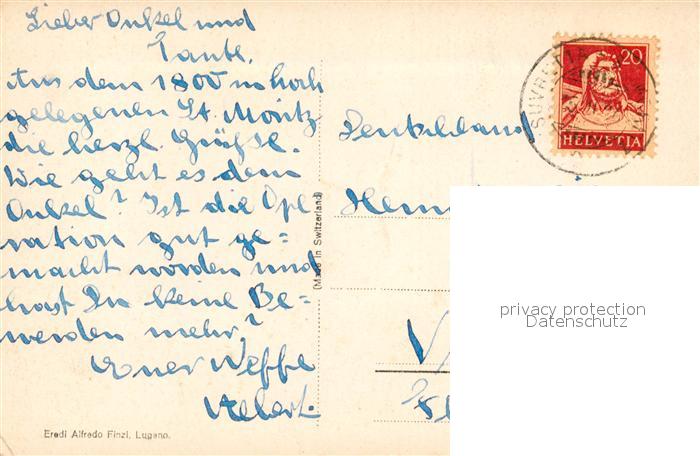 Lieber Onkel und
Tante.
Aus dem 1800 m hoch
gelegenen St. Moritz
die herzl. Grüße.
Wie geht es dem
Onkel? Ist die Ope-
ration gut ge=
macht worden und
hast Du keine Be=
werden mehr?
Euer Neffe
Albert.
Eredi Alfredo Finzi, Lugano.
(Made in Switzerland)
20
HELVETIA
SUVRETTA
Deutschland
privacy protection
Datenschutz